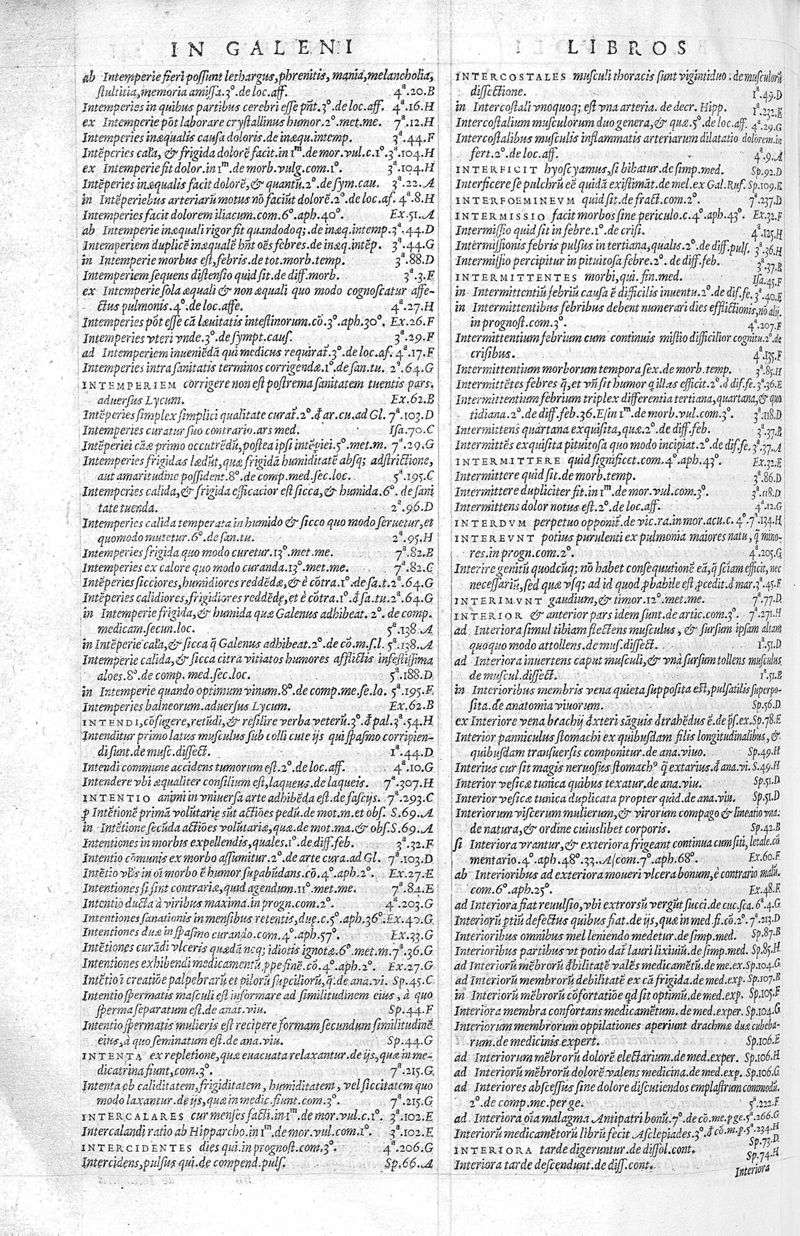 IN GALENI
ab Intemperie fieri possunt lethargus, phrenitis, mania, melancholia,
stultitia, memoria amissa. 3°. de loc. aff. 4ª. 20. B
Intemperies in quibus partibus cerebri esse pñt. 3°. de loc. aff. 4ª. 16. H
ex Intemperie põt laborare crystallinus humor. 2°. met. me. 7ª. 12. H
Intemperies inæqualis causa doloris. de inæqu. intemp. 3ª. 44. F
Intẽperies calã, & frigida dolorẽ facit. in 1m. de mor. vul. c. 1°. 3ª. 104. H
ex Intemperie fit dolor. in 1m. de morb. vulg. com. 1°. 3ª. 104. H
Intẽperies inæqualis facit dolorẽ, & quantũ. 2°. de sym. cau. 3ª. 22. A
in Intẽperiebus arteriarũ motus nõ faciũt dolorẽ. 2°. de loc. af. 4ª. 8. H
Intemperies facit dolorem iliacum. com. 6°. aph. 40°. Ex. 51. A
ab Intemperie inæquali rigor fit quandodoq;. de inæq. intemp. 3ª. 44. D
Intemperiem duplicẽ inæqualẽ hñt oẽs febres. de inæq. intẽp. 3ª. 44. G
in Intemperie morbus est, febris. de tot. morb. temp. 3ª. 88. D
Intemperiem sequens distensio quid sit. de diff. morb. 3ª. 3. E
ex Intemperie sola æquali & non æquali quo modo cognoscatur affe-
ctus pulmonis. 4°. de loc. affe. 4ª. 27. H
Intemperies põt esse cã læuitatis intestinorum. cõ. 3°. aph. 30°. Ex. 26. F
Intemperies vteri vnde. 3°. de sympt. caus. 3ª. 29. F
ad Intemperiem inueniẽdã qui medicus requirat. 3°. de loc. af. 4ª. 17. F
Intemperies intra sanitatis terminos corrigendæ. 1°. de san. tu. 2ª. 64. G
INTEMPERIEM corrigere non est postrema sanitatem tuentis pars.
aduersus Lycum. Ex. 62. B
Intẽperies simplex simplici qualitate curat. 2°. đ ar. cu, ad Gl. 7ª. 103. D
Intemperies curatur suo contrario. ars med. Isa. 70. C
Intẽperiei cãæ primo occurrẽdũ, postea ipsi intẽpiei. 5°. met. m. 7ª. 29. G
Intemperies frigidas lædũt, quæ frigidã humiditatẽ absq; adstrictione,
aut amaritudine possident. 8°. de comp. med. sec. loc. 5ª. 195. C
Intemperies calida, & frigida efficacior est sicca, & humida. 6°. de sani
tate tuenda. 2ª. 96. D
Intemperies calida temperata in humido & sicco quo modo seruetur, et
quomodo mutetur. 6°. de san. tu. 2ª. 95. H
Intemperies frigida quo modo curetur. 13°. met. me. 7ª. 82. B
Intemperies ex calore quo modo curanda. 13°. met. me. 7ª. 82. C
Intẽperies sicciores, humidiores reddẽdæ, & è cõtra. 1°. de sa. t. 2ª. 64. G
Intẽperies calidiores, frigidiores reddẽdę, et è cõtra. 1°. đ sa. tu. 2ª. 64. G
in Intemperie frigida, & humida quæ Galenus adhibeat. 2°. de comp.
medicam. secun. loc. 5ª. 138. A
in Intẽperie calã, & sicca q̃ Galenus adhibeat. 2°. de cõ. m. s. l. 5ª. 138. A
Intemperie calida, & sicca citra vitiatos humores afflictis infestissima
aloes. 8°. de comp. med. sec. loc. 5ª. 188. D
in Intemperie quando optimum vinum. 8°. de comp. me. se. lo. 5ª. 195. F
Intemperies balneorum. aduersus Lycum. Ex. 62. B
INTENDI, cõfugere, retũdi, & resilire verba veterũ. 3°. đ pal. 3ª. 54. H
Intenditur primo latus musculus sub colli cute ijs qui spasmo corripien-
di sunt. de musc. dissect. 1ª. 44. D
Intendi commune accidens tumorum est. 2°. de loc. aff. 4ª. 10. G
Intendere vbi æqualiter consilium est, laqueus. de laqueis. 7ª. 307. H
INTENTIO animi in vniuersa arte adhibẽda est. de fascijs. 7ª. 293. C
p Intẽtionẽ primã volũtariẹ sũt actiões pedũ. de mot. m. et obs. S. 69. A
in Intẽtione secũda actiões volũtariæ, quæ. de mot. ma. & obs. S. 69. A
Intentiones in morbis expellendis, quales. 1°. de diff. feb. 3ª. 32. F
Intentio cõmunis ex morbo assumitur. 2°. de arte cura. ad Gl. 7ª. 103. D
Intẽtio vẽs in oĩ morbo ẽ humor supabũdans. cõ. 4°. aph. 2°. Ex. 27. E
Intentiones si sint contrariæ, quid agendum. 11°. met. me. 7ª. 84. E
Intentio ducta à viribus maxima. in progn. com. 2°. 4ª. 203. G
Intentiones sanationis in mensibus retentis, duę. c. 5°. aph. 36°. Ex. 40. G
Intentiones duæ in spasmo curando. com. 4°. aph. 57°. Ex. 33. G
Intẽtiones curãdi vlceris quædã neq; idiotis ignotæ. 6°. met. m. 7ª. 36. G
Intentiones exhibendi medicamentũ, ppe finẽ. cõ. 4°. aph. 2°. Ex. 27. G
Intẽtio ĩ creatiõe palpebrarũ et pilorũ supciliorũ, q̃. de ana. vi. Sp. 45. C
Intentio spermatis masculi est informare ad similitudinem eius, à quo
sperma separatum est. de anat. viu. Sp. 44. F
Intentio spermatis mulieris est recipere formam secundum similitudinẽ
eius, à quo seminatum est. de ana. viu. Sp. 44. G
INTENTA ex repletione, quæ euacuata relaxantur. de ijs, quæ in me-
dicatrina fiunt, com. 3°. 7ª. 215. G
Intenta ob caliditatem, frigiditatem, humiditatem, vel siccitatem quo
modo laxantur. de ijs, quæ in medic. fiunt. com. 3°. 7ª. 215. G
INTERCALARES cur menses facti. in 1m. de mor. vul. c. 1°. 3ª. 102. E
Intercalandi ratio ab Hipparcho. in 1m. de mor. vul. com. 1°. 3ª. 102. E
INTERCIDENTES dies qui. in prognost. com. 3°. 4ª. 206. G
Intercidens, pulsus qui. de compend. puls. Sp. 66. A
LIBROS
INTERCOSTALES musculi thoracis sunt vigintiduo. de musculorũ
dissectione. 1ª. 49. D
in Intercostali vnoquoq; est vna arteria. de decr. Hipp. 1ª. 232. E
Intercostalium musculorum duo genera, & quæ. 5°. de loc. aff. 4ª. 29. G
Intercostalibus musculis inflammatis arteriarum dilatatio dolorem in-
fert. 2°. de loc. aff. 4ª. 9. A
INTERFICIT hyoscyamus, si bibatur. de simp. med. Sp. 92. D
Interficere se pulchrũ eẽ quidã existimãt. de mel. ex Gal. Ruf. Sp. 109. E
INTERFOEMINEVM quid sit. de fract. com. 2°. 7ª. 237. D
INTERMISSIO facit morbos sine periculo. c. 4°. aph. 43°. Ex. 32. F
Intermissio quid sit in febre. 1°. de crisi. 4ª. 125. H
Intermissionis febris pulsus in tertiana, qualis. 2°. de diff. puls. 3ª. 36. H
Intermissio percipitur in pituitosa febre. 2°. de diff. feb. 3ª. 37. B
INTERMITTENTES morbi, qui. fin. med. Isa. 45. F
in Intermittentiũ febriũ causa ẽ difficilis inuentu. 2°. de dif. fe. 3ª. 40. E
in Intermittentibus febribus debent numerari dies efflictionis, nõ alij.
in prognost. com. 3°. 4ª. 207. F
Intermittentium febrium cum continuis mistio difficilior cognitu. 2°. de
crisibus. 4ª. 135. F
Intermittentium morburum tempora sex. de morb. temp. 3ª. 85. H
Intermittẽtes febres q̃, et vñ sit humor q illas efficit. 2°. đ dif. fe. 3ª. 36. E
Intermittentium febrium triplex differentia tertiana, quartana, & quo
tidiana. 2°. de diff. feb. 36. E, in 1m. de morb. vul. com. 3°. 3ª. 118. D
Intermittens quartana exquisita, quæ. 2°. de diff. feb. 3ª. 37. B
Intermittẽs exquisita pituitosa quo modo incipiat. 2°. de dif. fe. 3ª. 37. A
INTERMITTERE quid significet. com. 4°. aph. 43°. Ex. 32. E
Intermittere quid sit. de morb. temp. 3ª. 86. D
Intermittere dupliciter fit. in 1m. de mor. vul. com. 3°. 3ª. 118. D
Intermittens dolor notus est. 2°. de loc. aff. 4ª. 12. G
INTERDVM perpetuo opponit. de vic. ra. in mor. acu. c. 4°. 7ª. 134. H
INTEREVNT potius purulenti ex pulmonia maiores natu, q̃ mino-
res. in progn. com. 2°. 4ª. 205. G
Interire genitũ quodcũq; nõ habet consequutionẽ eã, q̃ sciam efficit, nec
necessariũ, sed quæ vsq; ad id quod pbabile est pcedit. đ mar. 3ª. 45. F
INTERIMVNT gaudium, & timor. 12°. met. me. 7ª. 77. D
INTERIOR & anterior pars idem sunt. de artic. com. 3°. 7ª. 271. H
ad Interiora simul tibiam flectens musculus, & sursum ipsam altam
quoquo modo attollens. de mus. dissect. 1ª. 51. D
ad Interiora inuertens caput musculi, & vnà sursum tollens musculus,
de muscul. dissect. 1ª. 51. B
in Interioribus membris vena quieta supposita est, pulsatilis superpo-
sita. de anatomia viuorum. Sp. 56. D
ex Interiore vena brachij đxteri sãguis đtrahẽdus ẽ. de pſ. ex. Sp. 78. E
Interior panniculus stomachi ex quibusdam filis longitudinalibus, &
quibusdam transuersis componitur. de ana. viuo. Sp. 49. H
Interius cur sit magis neruosus stomach⁹ q̃ extarius. đ ana. vi. S. 49. H
Interior vesicæ tunica quibus texatur. de ana. viu. Sp. 51. D
Interior vesicæ tunica duplicata propter quid. de ana. viu. Sp. 51. D
Interiorum viscerum mulierum, & virorum compago & lineatio vna.
de natura, & ordine cuiuslibet corporis. Sp. 42. B
si Interiora vrantur, & exteriora frigeant continua cum siti, letale. cõ
mentario. 4°. aph. 48°. 33. A, com. 7°. aph. 68°. Ex. 60. F
ab Interioribus ad exteriora moueri vlcera bonum, è contrario malũ.
com. 6°. aph. 25°. Ex. 48. F
ad Interiora fiat reuulsio, vbi extrorsũ vergũt succi. de cuc. sca. 6ª. 4. G
Interiorũ ptiũ defectus quibus fiat. de ijs, quæ in med. fi. cõ. 2°. 7ª. 213. D
Interioribus omnibus mel leniendo medetur. de simp. med. Sp. 87. B
Interioribus partibus vt potio dat. lauri lixiuiũ. de simp. med. Sp. 85. H
ad Interiorũ mẽbrorũ đbilitatẽ valẽs medicamẽtũ. de me. ex. Sp. 104. G
ad Interiorũ membrorũ debilitatẽ ex cã frigida. de med. exp. Sp. 107. B
in Interiorũ mẽbrorũ cõfortatiõe qđ sit optimũ. de med. exp. Sp. 105. F
Interiora membra confortans medicamẽtum. de med. exper. Sp. 104. G
Interiorum membrorum oppilationes aperiunt drachmæ duæ cubeba-
rum. de medicinis expert. Sp. 106. E
ad Interiorum mẽbrorũ dolorẽ electarium. de med. exper. Sp. 106. H
ad Interiorũ mẽbrorũ dolorẽ valens medicina. de med. exp. Sp. 106. G
ad Interiores abscessus sine dolore discutiendos emplastrum commodũ.
2°. de comp. me. per ge. 5ª. 222. F
ad Interiora oĩa malagma Antipatri bonũ. 7°. de cõ. me. p ge. 5ª. 266. G
Interiorũ medicamẽtorũ librũ fecit Asclepiades. 3°. đ cõ. m. p. 5ª. 234. H
INTERIORA tarde digeruntur. de dissol. cont. Sp. 73. D
Interiora tarde descendunt. de diss. cont. Sp. 74. H
Interiora